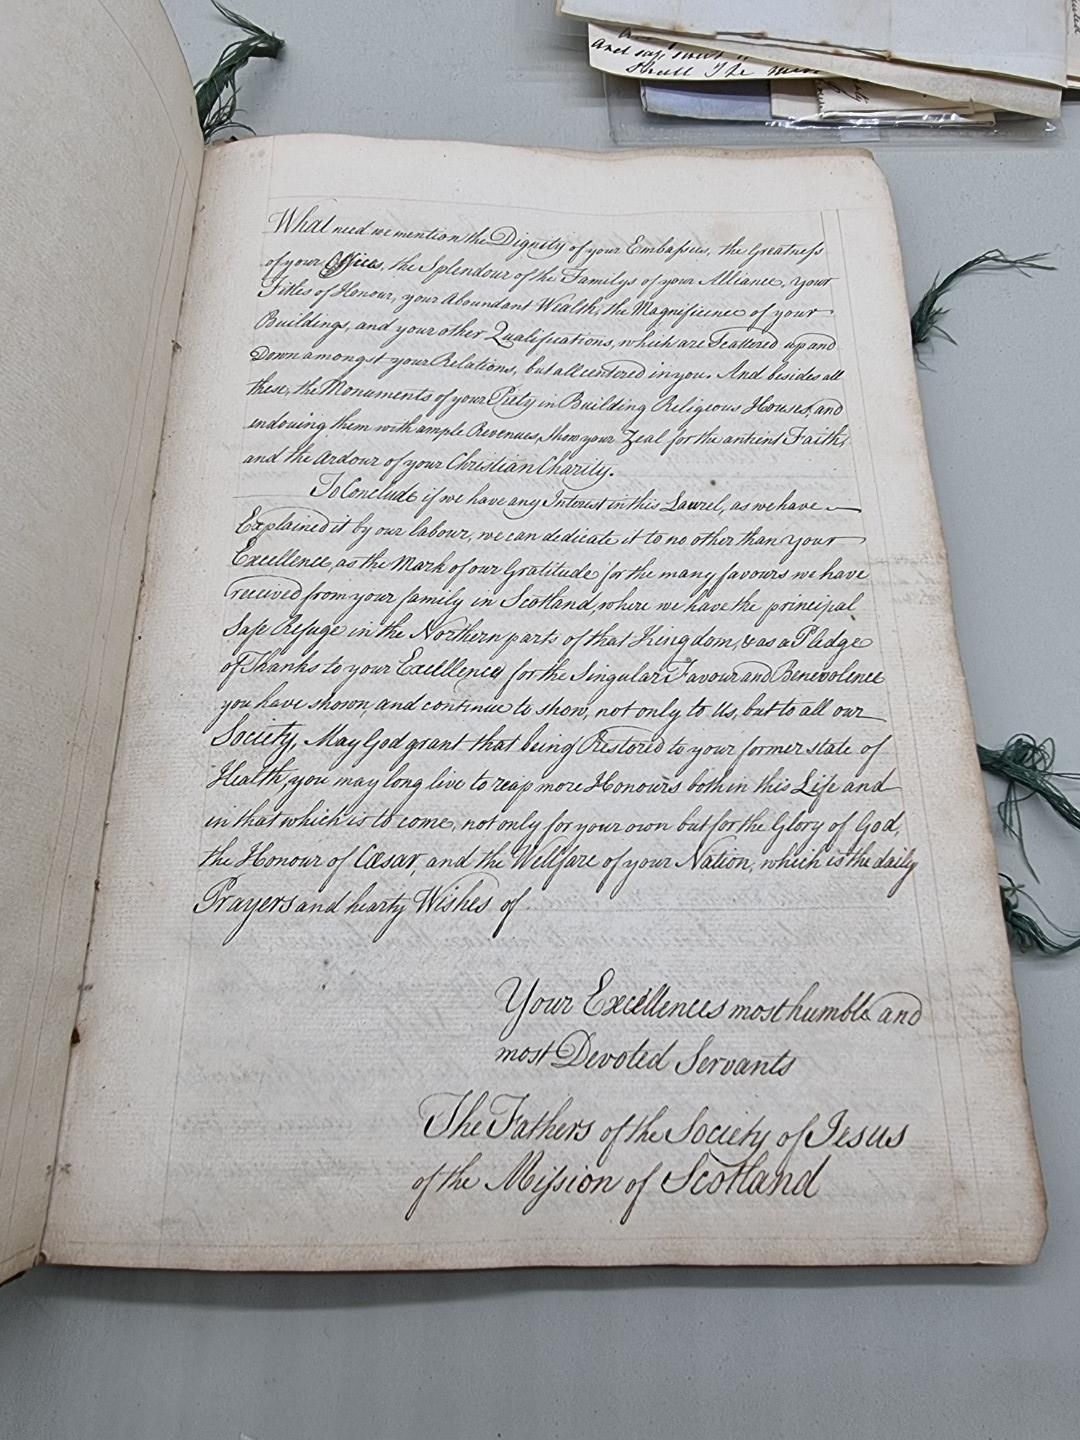 And say, sweet
Shall I be
What need we mention the Dignity of your Embassies, the Greatness
of your Offices, the Splendour of the Familys of your Alliance, your
Titles of Honour, your Aboundant Wealth, the Magnificence of your
Buildings, and your other Qualifications, which are Scattered up and
Down amongst your Relations, but all centered in you. And besides all
these, the Monuments of your Piety in Building Religious Houses, and
endouing them with ample Revenues, show your Zeal for the antient Faith,
and the Ardour of your Christian Charity.
To Conclude if we have any Interest in this Laurel, as we have
Explained it by our labour, we can dedicate it to no other than your
Excellence, as the Mark of our Gratitude for the many favours we have
received from your family in Scotland, where we have the principal
Safe Refuge in the Northern parts of that Kingdom, & as a Pledge
of Thanks to your Excellence for the Singular Favour and Benevolence
you have shown, and continue to show, not only to Us, but to all our
Society, May God grant that being Restored to your former state of
Health, you may long live to reap more Honours both in this Life and
in that which is to come, not only for your own but for the Glory of God,
the Honour of Cæsar, and the Wellfare of your Nation, which is the daily
Prayers and hearty Wishes of
Your Excellences most humble and
most Devoted Servants
The Fathers of the Society of Jesus
of the Mission of Scotland